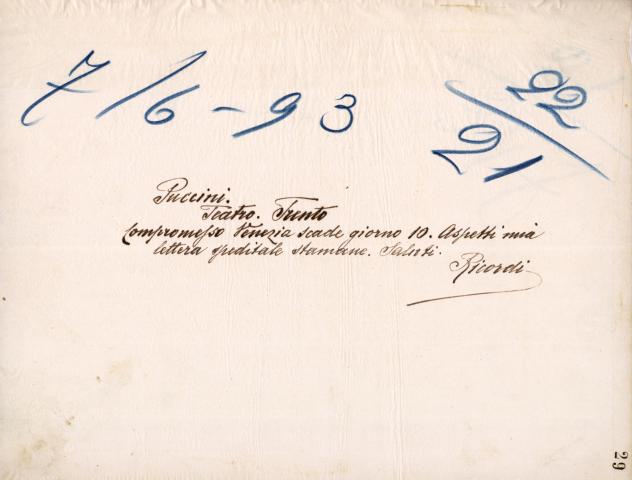 7/6-93
22/21
Puccini.
Teatro. Trento
Compromesso Venezia scade giorno 10. Aspetti mia
lettera speditale stamane. Saluti.
Ricordi
29